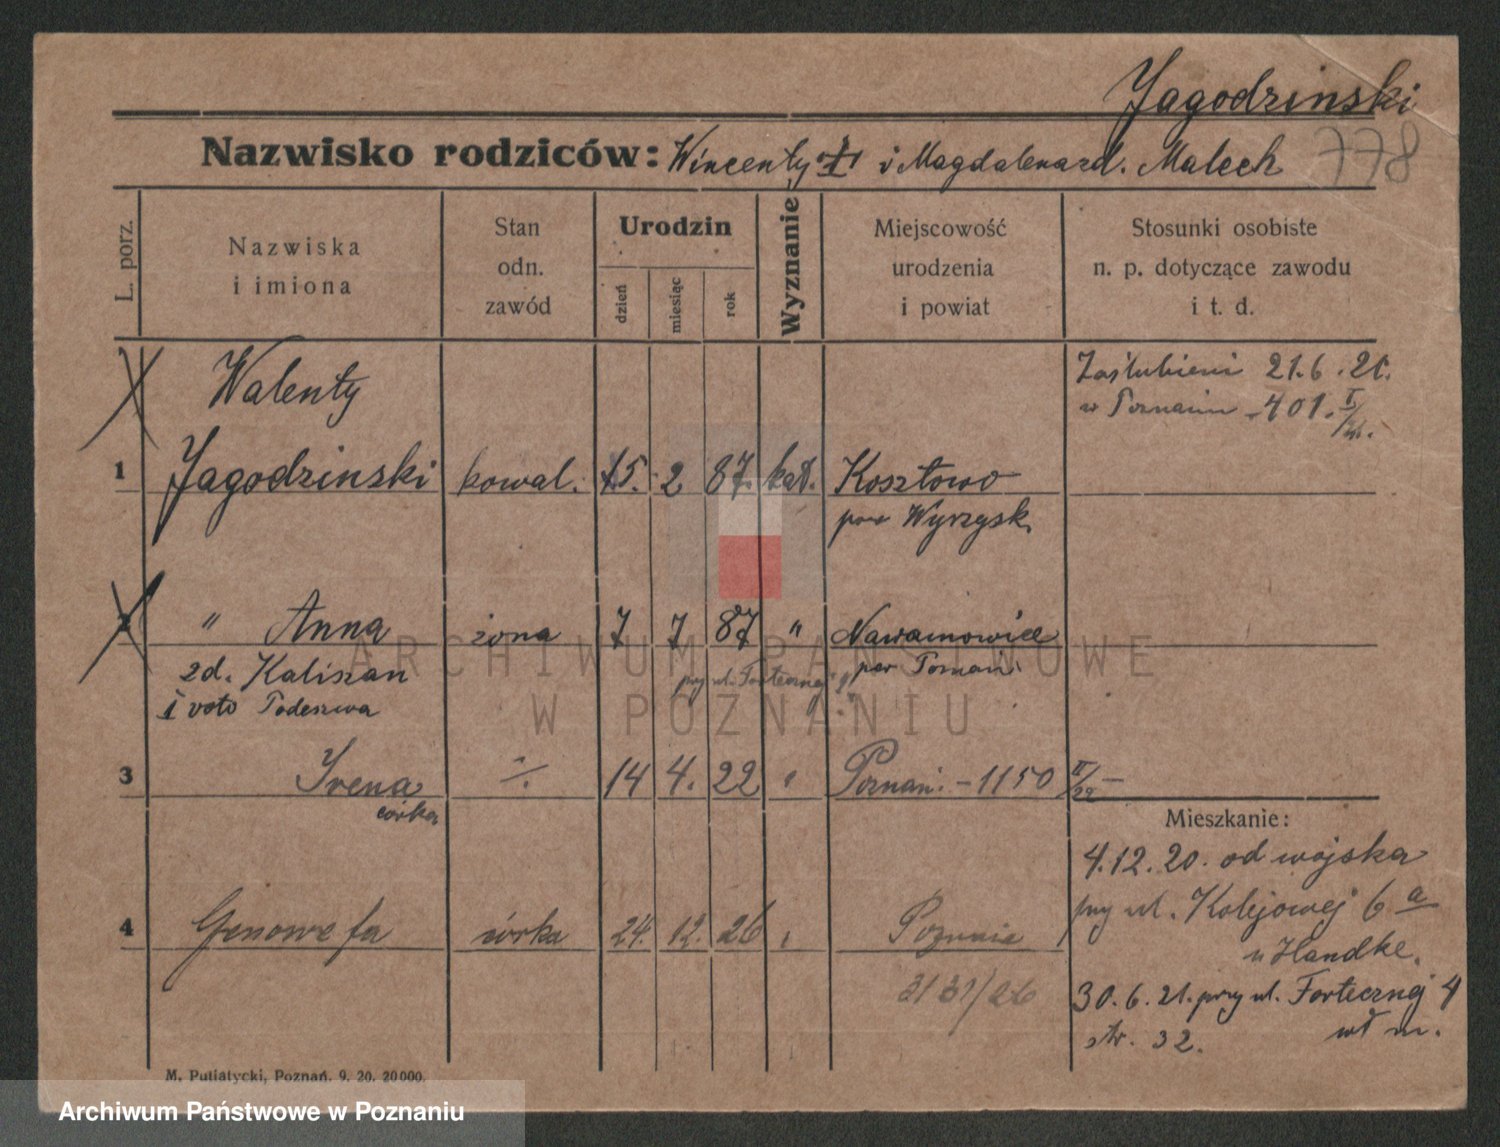 Jagodzinski
Nazwisko rodziców: Wincenty i Magdalena zd. Malech 778
L. porz.
Nazwiska
i imiona
Stan
odn.
zawód
Urodzin
dzień
miesiąc
rok
Wyznanie
Miejscowość
urodzenia
i powiat
Stosunki osobiste
n. p. dotyczące zawodu
i t. d.
Walenty
1 Jagodzinski kowal. 15. 2 87. kat. Kosztowo
pow Wyrzysk
Zaślubieni 21.6.21.
w Poznaniu - 401.
" Anna żona 7 7 87 "
zd. Kaliszan pow Poznań
I voto Podeszwa
przy ul. Fortecznej
3 Irena 14 4. 22 Poznań - 1150 II/22 -
córka
Mieszkanie:
4.12.20. od wojska
przy ul. Kolejowej 6 a
u Handke.
30.6.21. przy ul. Fortecznej 4
str. 32.
4 Genowefa córka 24. 12. 26
3131/26
M. Putiatycki, Poznań. 9. 20. 20000.
ARCHIWUM PAŃSTWOWE
W POZNANIU
Archiwum Państwowe w Poznaniu